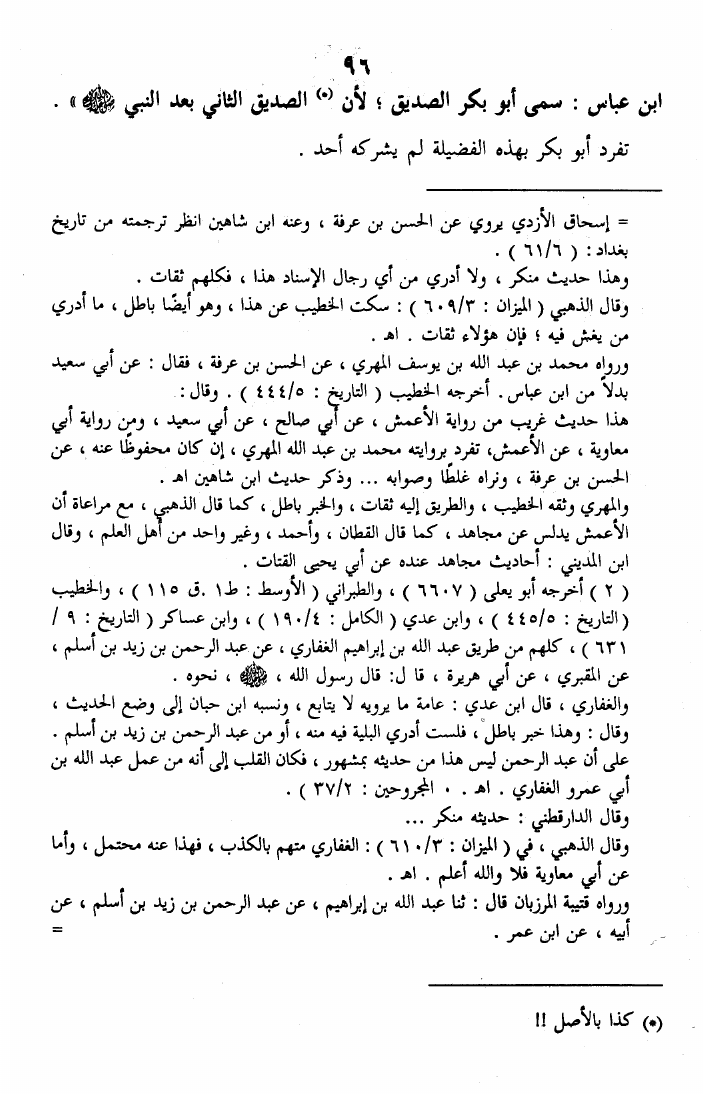 ٩٦
ابن عباس : سمى أبو بكر الصديق ؛ لأن (*) الصديق الثاني بعد النبي ﷺ » .
تفرد أبو بكر بهذه الفضيلة لم يشركه أحد .
= إسحاق الأزدي يروي عن الحسن بن عرفة ، وعنه ابن شاهين انظر ترجمته من تاريخ
بغداد : ( ٦١/٦ ) .
وهذا حديث منكر ، ولا أدري من أي رجال الإسناد هذا ، فكلهم ثقات .
وقال الذهبي ( الميزان : ٦٠٩/٣ ) : سكت الخطيب عن هذا ، وهو أيضًا باطل ، ما أدري
من يغش فيه ؛ فإن هؤلاء ثقات . اهـ .
ورواه محمد بن عبد الله بن يوسف المهري ، عن الحسن بن عرفة ، فقال : عن أبي سعيد
بدلاً من ابن عباس . أخرجه الخطيب ( التاريخ : ٤٤٤/٥ ) . وقال :
هذا حديث غريب من رواية الأعمش ، عن أبي صالح ، عن أبي سعيد ، ومن رواية أبي
معاوية ، عن الأعمش، تفرد بروايته محمد بن عبد الله المهري ، إن كان محفوظًا عنه ، عن
الحسن بن عرفة ، ونراه غلطًا وصوابه ... وذكر حديث ابن شاهين اهـ .
والمهري وثقه الخطيب ، والطريق إليه ثقات ، والخبر باطل ، كما قال الذهبي ، مع مراعاة أن
الأعمش يدلس عن مجاهد ، كما قال القطان ، وأحمد ، وغير واحد من أهل العلم ، وقال
ابن المديني : أحاديث مجاهد عنده عن أبي يحيى القتات .
( ٢ ) أخرجه أبو يعلى ( ٦٦٠٧ ) ، والطبراني ( الأوسط : ط١ .ق ١١٥ ) ، والخطيب
( التاريخ : ٤٤٥/٥ ) ، وابن عدي ( الكامل : ١٩٠/٤ ) ، وابن عساكر ( التاريخ : ٩ /
٦٣١ ) ، كلهم من طريق عبد الله بن إبراهيم الغفاري ، عن عبد الرحمن بن زيد بن أسلم ،
عن المقبري ، عن أبي هريرة ، قا ل: قال رسول الله ، ﷺ ، نحوه .
والغفاري ، قال ابن عدي : عامة ما يرويه لا يتابع ، ونسبه ابن حبان إلى وضع الحديث ،
وقال : وهذا خبر باطل ، فلست أدري البلية فيه منه ، أو من عبد الرحمن بن زيد بن أسلم .
على أن عبد الرحمن ليس هذا من حديثه بمشهور ، فكان القلب إلى أنه من عمل عبد الله بن
أبي عمرو الغفاري . اهـ . ٠ المجروحين : ٣٧/٢ ) .
وقال الدارقطني : حديثه منكر ...
وقال الذهبي ، في ( الميزان : ٦١٠/٣ ) : الغفاري متهم بالكذب ، فهذا عنه محتمل ، وأما
عن أبي معاوية فلا والله أعلم . اهـ .
ورواه قتيبة المرزبان قال : ثنا عبد الله بن إبراهيم ، عن عبد الرحمن بن زيد بن أسلم ، عن
أبيه ، عن ابن عمر . =
(*) كذا بالأصل !!